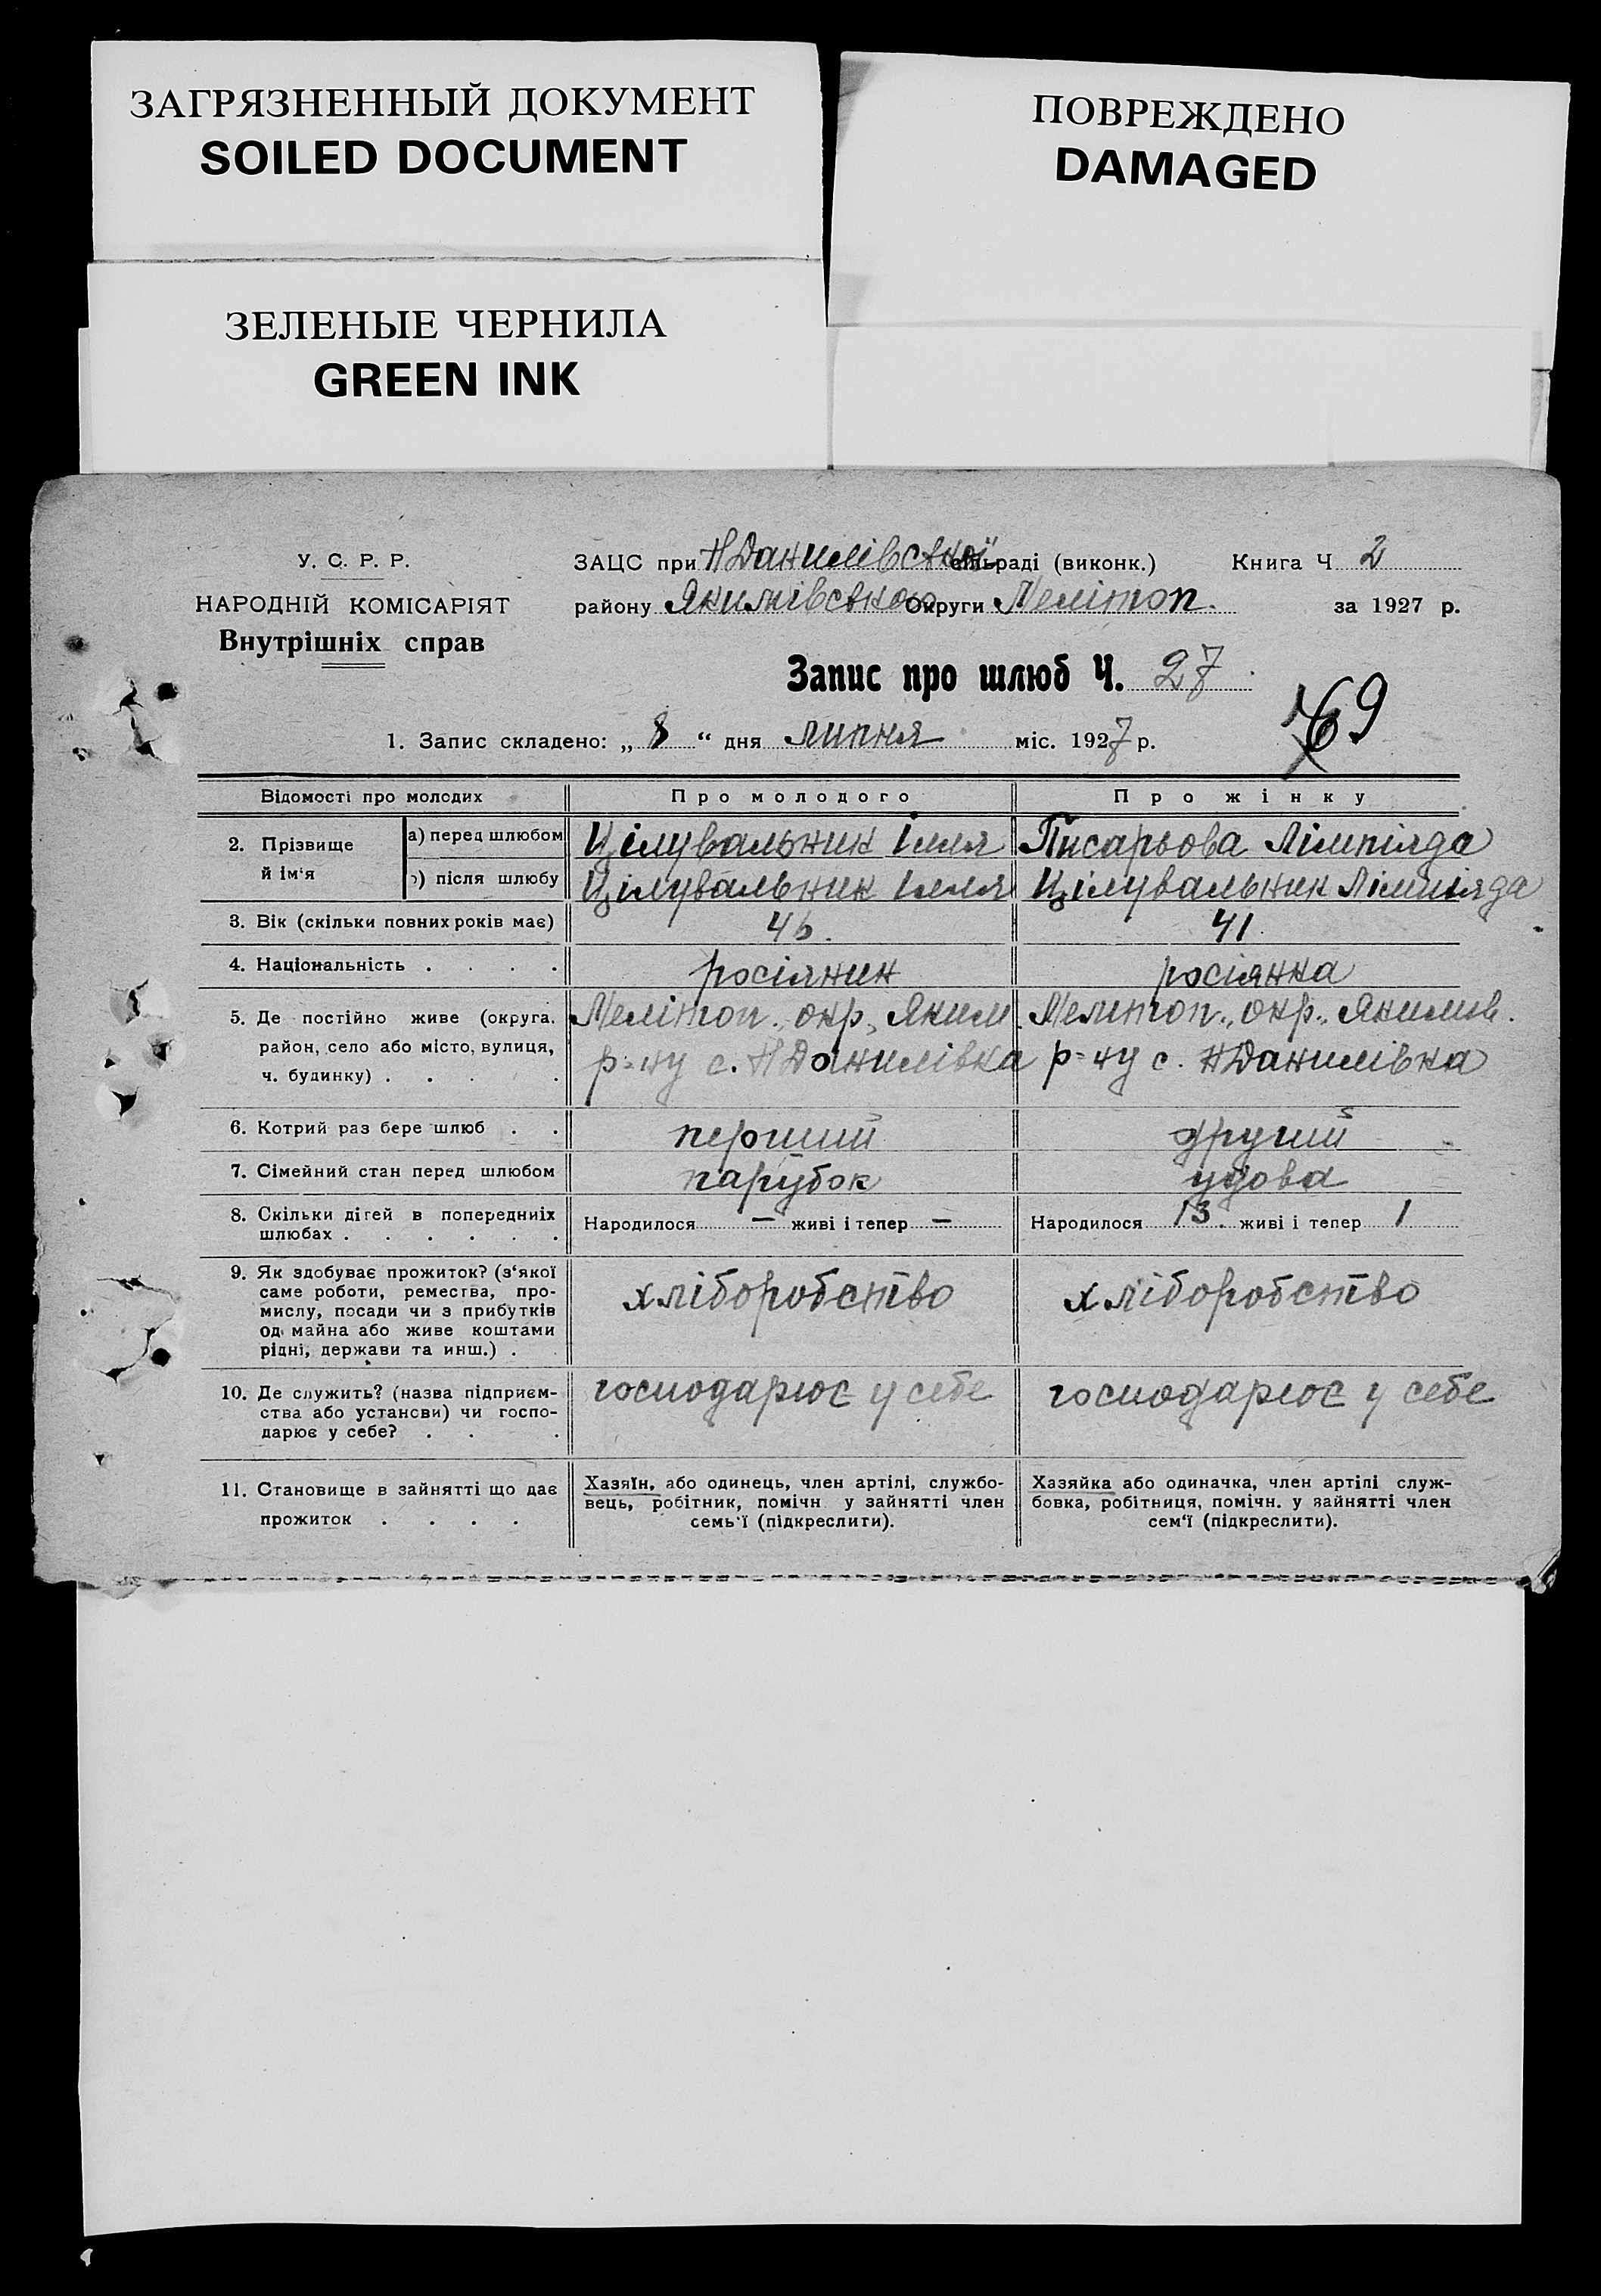 ЗАГРЯЗНЕННЫЙ ДОКУМЕНТ
SOILED DOCUMENT
ПОВРЕЖДЕНО
DAMAGED
ЗЕЛЕНЫЕ ЧЕРНИЛА
GREEN INK
У. С. Р. Р.
НАРОДНІЙ КОМІСАРІЯТ
Внутрішніх справ
ЗАЦС при Н Данилівської сільраді (виконк.) Книга Ч 2
району Якимівського Округи Мелітоп. за 1927 р.
Запис про шлюб Ч. 27
69
1. Запис складено: „ 8 “ дня липня міс. 1927 р.
Відомості про молодих Про молодого Про жінку
2. Прізвище й ім‘я а) перед шлюбом Цілувальник Ілля Писарьова Лімпіяда
б) після шлюбу Цілувальник Ілля Цілувальник Лімпіяда
3. Вік (скільки повних років має) 46. 41.
4. Національність . . . . росіянин росіянка
5. Де постійно живе (округа, Мелітоп., окр., Яким. Мелитоп., окр., Якимів.
район, село або місто, вулиця, р=ну с. Н Данилівка р=ну с. Н Данилівка
ч. будинку) . . . .
6. Котрий раз бере шлюб . . перший другий
7. Сімейний стан перед шлюбом парубок удова
8. Скільки дітей в попередниіх Народилося — живі і тепер — Народилося 13. живі і тепер 1
шлюбах . . . . . .
9. Як здобуває прожиток? (з‘якої хліборобство хліборобство
саме роботи, ремества, про-
мислу, посади чи з прибутків
од майна або живе коштами
рідні, держави та инш.) .
10. Де служить? (назва підприєм- господарює у себе господарює у себе
ства або установи) чи госпо-
дарює у себе? . . .
11. Становище в зайнятті що дає Хазяїн, або одинець, член артілі, службо- Хазяйка або одиначка, член артілі служ-
прожиток . . . . вець, робітник, помічн. у зайнятті член бовка, робітниця, помічн. у зайнятті член
семь‘ї (підкреслити). сем‘ї (підкреслити).